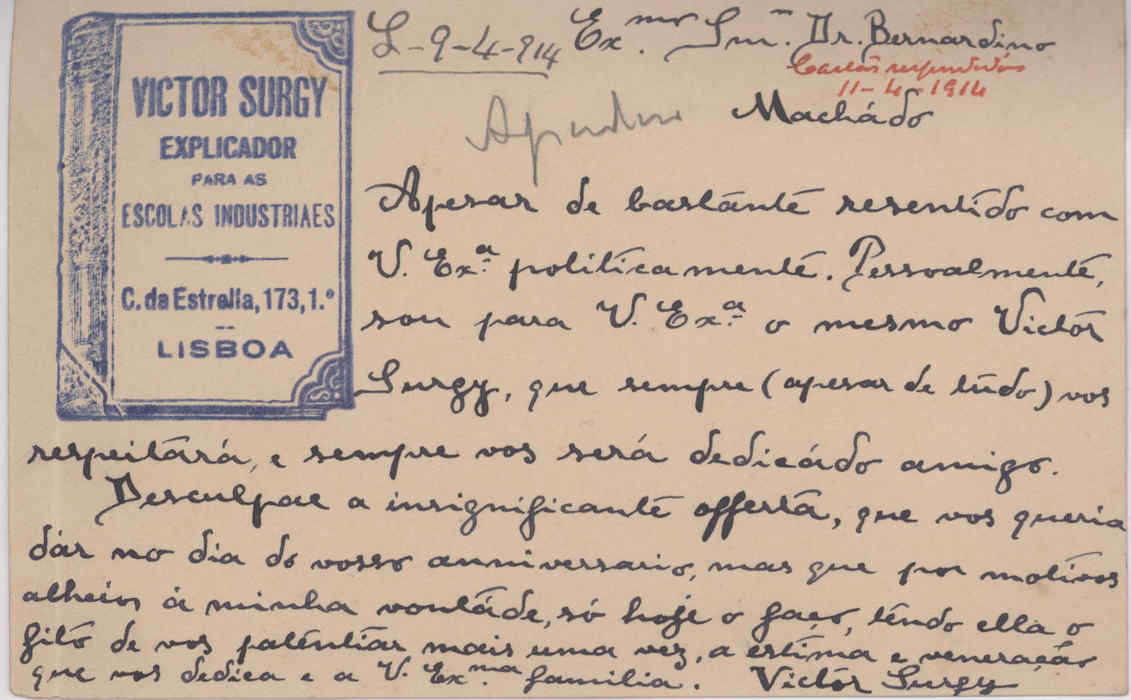 VICTOR SURGY
EXPLICADOR
PARA AS
ESCOLAS INDUSTRIAES
C. da Estrella, 173, 1.º
LISBOA
L-9-4-914 Ex.mo Snr. Dr. Bernardino
11-4-1914
Machádo
Apesar de bastánte resentido com
V. Ex.ª politicamente. Pessoalmente,
sou para V. Ex.ª o mesmo Victór
Surgy, que sempre (apesar de túdo) vos
respeitará, e sempre vos será dedicádo amigo.
Desculpae a insignificante offerta, que vos queria
dár no dia do vosso anniversario, mas que por motivos
alheios á minha vontáde, só hoje o faço, tendo ella o
fito de vos patentiar mais uma vez, a estima e veneração
que vos dedica e a V. Ex.ma familia. Victór Surgy